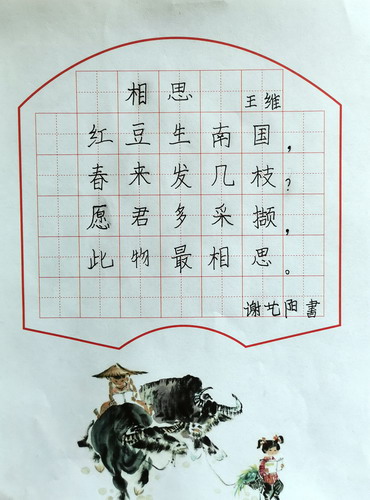 相思
王维
红豆生南国，
春来发几枝？
愿君多采撷，
此物最相思。
谢艽阳書